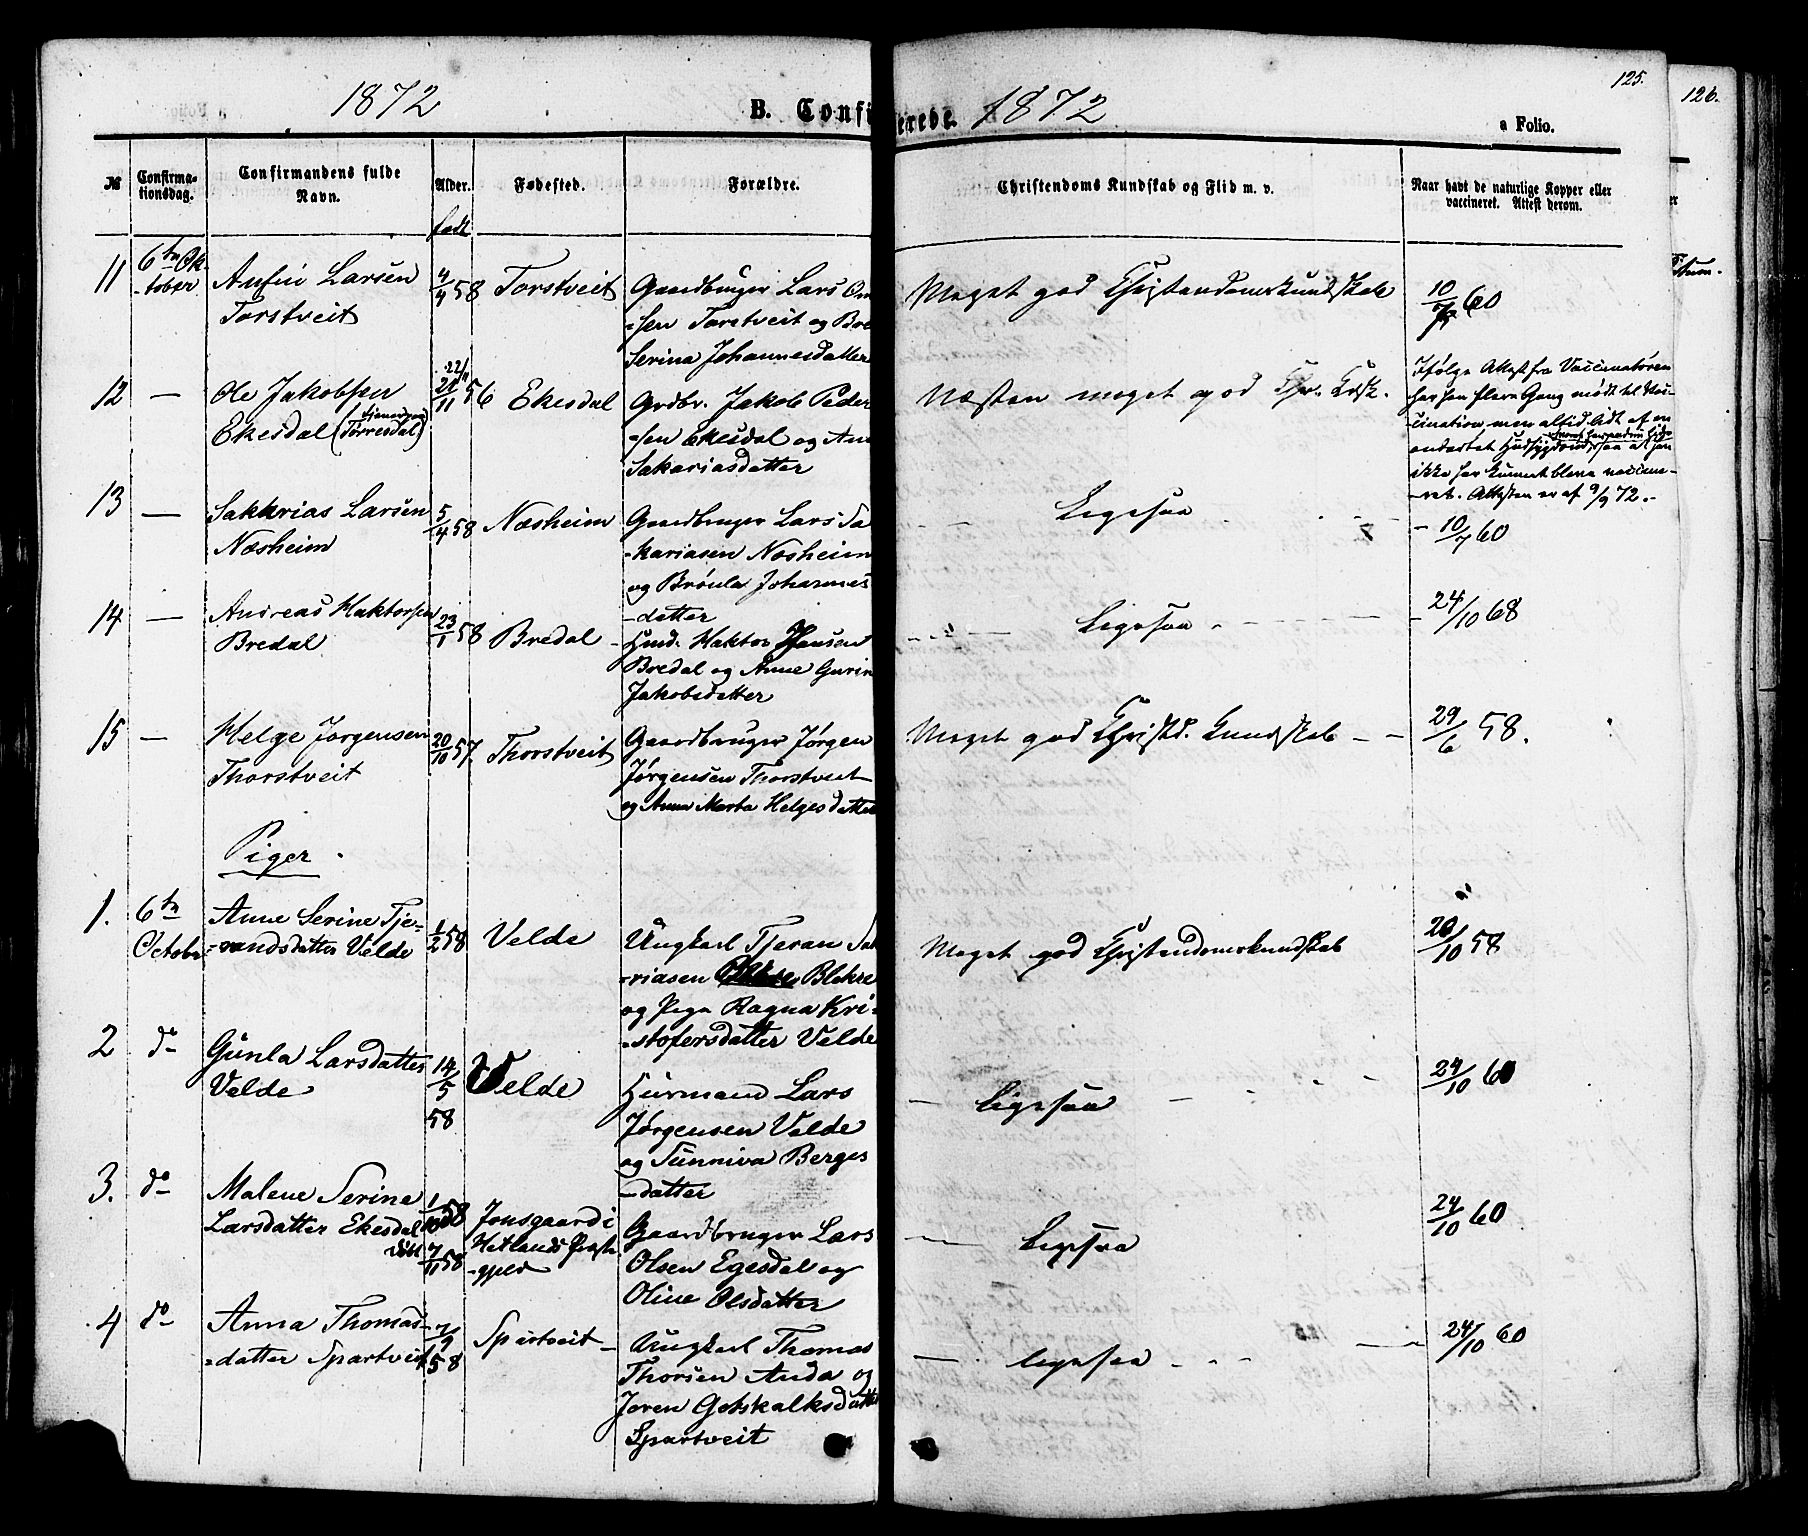 1872
B. Confi
rerede. 1872
125.
126.
a Folio.
№
Confirma-
tionsdag.
Confirmandens fulde
Navn.
Alder.
født
Fødested.
Forældre.
Christendoms Kundskab og Flid m. v.
Naar havt de naturlige Kopper eller
vaccineret. Attest derom.
11
6te Ok-
-tober
Anfin Larsen
Torstveit
4/4 58
Torstveit
Gaardbruger Lars Om
-sen Torstveit og Bre
Serina Johannesdatter
Meget god Christendomskundskab
10/7 60
12
—
Ole Jakobsen
Ekesdal (Tjenerdreng Torresdal)
22/11
21/11 56
Ekesdal
Grdbr. Jakob Peder
-sen Ekesdal og Ann
Sakariasdatter
Næsten meget god Chr. Kdsk.
Ifølge Attest fra Vaccinatøren
har han flere Gang mødt til Vac-
-cination, men altid lidt af en
ondartet Hudsygdom saa at han
ikke har kunnet blive vaccine-
-ret. Attesten er af 9/9 72.-
13
—
Sakkrias Larsen
Næsheim
5/4 58
Næsheim
Gaardbruger Lars Sa
-kariasen Næsheim
og Brönla Johannes
-datter
Ligesaa
- 10/7 60
14
—
Andreas Haktorsen
Bredal
23/1 58
Bredal -
Hmd. Haktor Hansen
Bredal og Anne Gurin
Jakobsdatter
Ligesaa
- 24/10 68
15
—
Helge Jørgensen
Thorstveit
20/10 57.
Thorstveit
Gaardbruger Jørgen
Jørgensen Thorstveit
og Anna Marta Helgesdatter
Meget god Christd. Kundskab - -
29/6 58.
Piger.
1.
6te
October
Anne Serine Tje-
=randsdatter Velde
1/2 58
Velde
Ungkarl Tjeran Sak
-riasen Blekre
og Pige Ragna Kri-
-stofersdatter Velde
Meget god Christendomskundskab
20/10 58
2
do
Gunla Larsdatter
Velde
14/5
58
Velde
Huusmand Lars
Jørgensen Velde
og Sunniva Berges
-datter
Ligesaa
24/10 60
3.
do
Malene Serine
Larsdatter Ekesdal
1/10 58
døbt 7/11 58
Jonsgaard i
Hetlands Præste
-gjeld
Gaardbruger Lars
Olsen Egesdal og
Oline Olsdatter
Ligesaa
24/10 60
4
do
Anna Thomas-
=datter Spartveit
7/9
58
Spartveit -
Ungkarl Thomas
Thorsen Anda og
Joren Gotskalksdatt
Spartveit
ligesaa
24/10 60